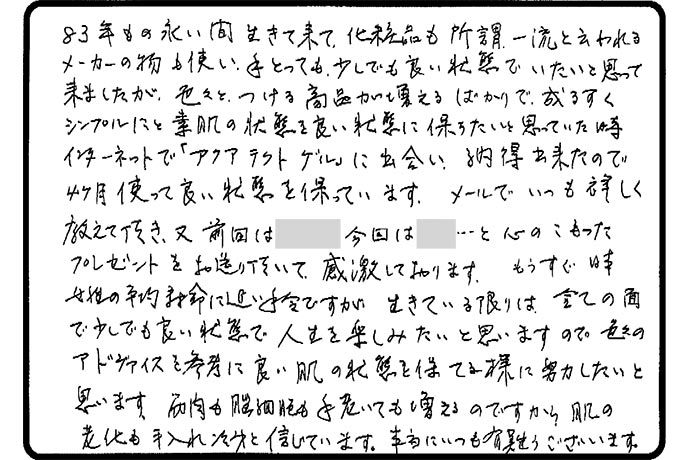 83年もの永い間生きて来て、化粧品も所謂、一流と云われる
メーカーの物も使い、手とっても、少しでも良い状態でいたいと思って
来ましたが、色々と、つける商品が増えるばかりで、成るすく
シンプルにと素肌の状態を良い状態に保ちたいと思っていた時
インターネットで「アクアテクトゲル」に出合い、納得出来たので
4ヶ月使って良い状態を保っています。メールでいつも詳しく
教えて頂き、又前回は 今回は …と心のこもった
プレゼントをお送り頂いて、感激しております。もうすぐ
女性の平均寿命に近い年令ですが生きている限りは、全ての面
で少しでも良い状態で人生を楽しみたいと思いますので色々の
アドヴァイスを参考に良い肌の状態を保てる様に努力したいと
思います。筋肉も脳細胞も年老いても増えるのですから、肌の
老化も手入れ次第と信じています。本当にいつも有難うございます。